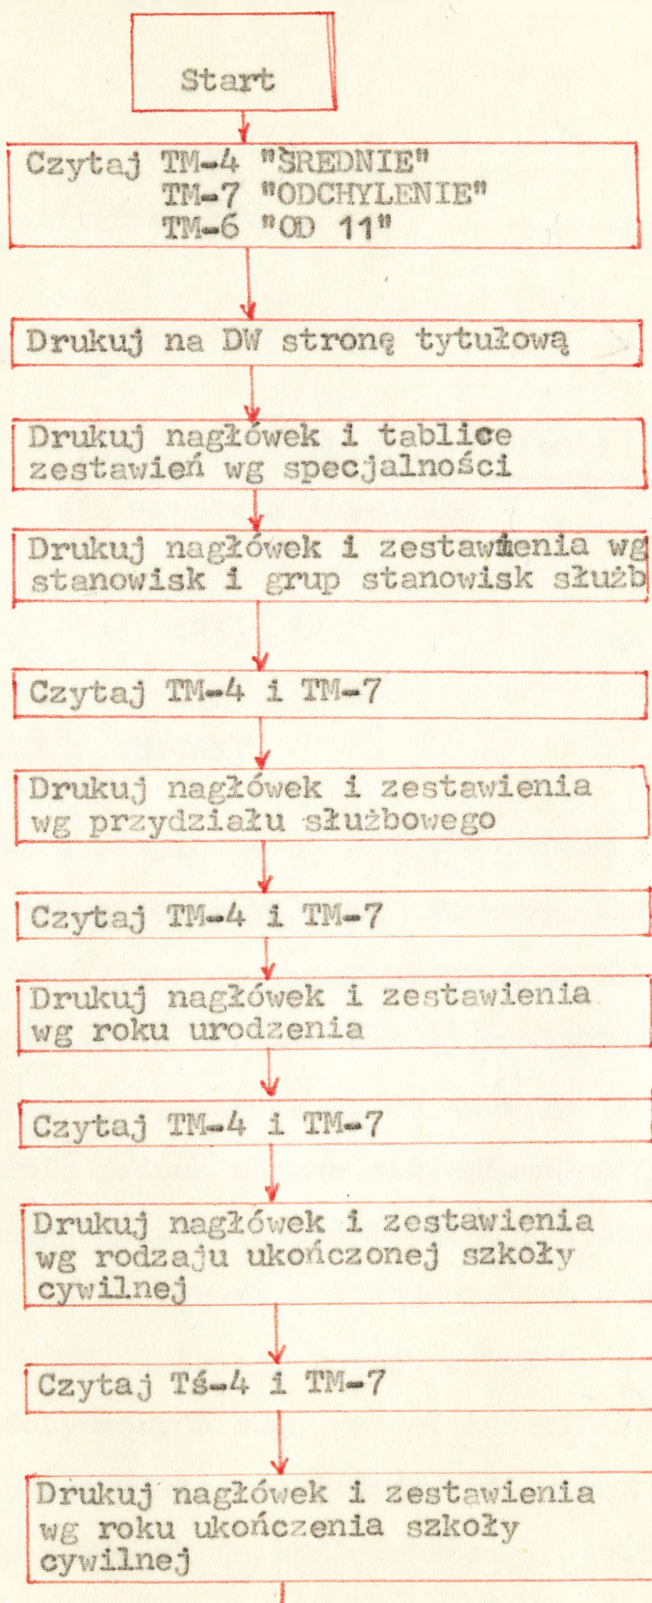 Start
Czytaj TM-4 "ŚREDNIE"
TM-7 "ODCHYLENIE"
TM-6 "OD 11"
Drukuj na DW stronę tytułową
Drukuj nagłówek i tablice
zestawień wg specjalności
Drukuj nagłówek i zestawienia wg
stanowisk i grup stanowisk służb
Czytaj TM-4 i TM-7
Drukuj nagłówek i zestawienia
wg przydziału służbowego
Czytaj TM-4 i TM-7
Drukuj nagłówek i zestawienia
wg roku urodzenia
Czytaj TM-4 i TM-7
Drukuj nagłówek i zestawienia
wg rodzaju ukończonej szkoły
cywilnej
Czytaj Tś-4 i TM-7
Drukuj nagłówek i zestawienia
wg roku ukończenia szkoły
cywilnej